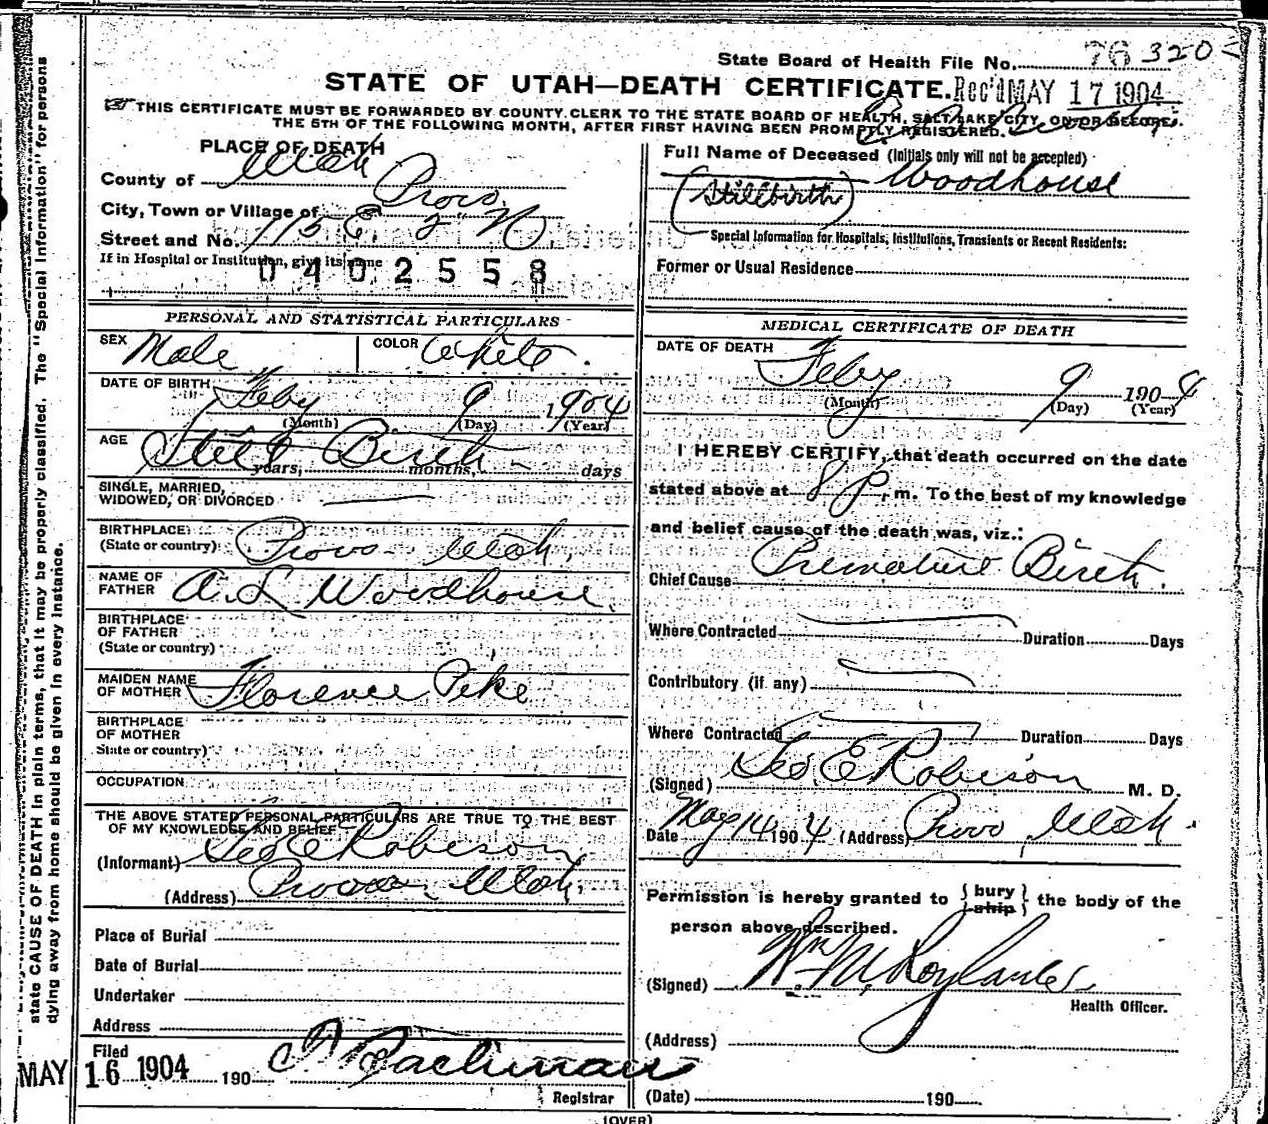 State Board of Health File No. 76 320
STATE OF UTAH—DEATH CERTIFICATE. Rec'd MAY 17 1904
THIS CERTIFICATE MUST BE FORWARDED BY COUNTY CLERK TO THE STATE BOARD OF HEALTH, SALT LAKE CITY, ON OR BEFORE
THE 5TH OF THE FOLLOWING MONTH, AFTER FIRST HAVING BEEN PROMPTLY REGISTERED.
PLACE OF DEATH
County of Utah
City, Town or Village of Provo
Street and No. 115 E 2" N
If in Hospital or Institution, give its name
0402558
Full Name of Deceased (Initials only will not be accepted)
Woodhouse
(Stillbirth)
Special Information for Hospitals, Institutions, Transients or Recent Residents:
Former or Usual Residence
PERSONAL AND STATISTICAL PARTICULARS
SEX Male COLOR White.
DATE OF BIRTH Feby 9 1904
(Month) (Day) (Year)
AGE Still Birth
years, months, days
SINGLE, MARRIED,
WIDOWED, OR DIVORCED
BIRTHPLACE
(State or country) Provo Utah
NAME OF
FATHER A. L. Woodhouse
BIRTHPLACE
OF FATHER
(State or country)
MAIDEN NAME
OF MOTHER Florence Pike
BIRTHPLACE
OF MOTHER
State or country)
OCCUPATION
THE ABOVE STATED PERSONAL PARTICULARS ARE TRUE TO THE BEST
OF MY KNOWLEDGE AND BELIEF
(Informant) Geo E Robison
(Address) Provo Utah
Place of Burial
Date of Burial
Undertaker
Address
Filed
MAY 16 1904 190
Registrar
MEDICAL CERTIFICATE OF DEATH
DATE OF DEATH
Feby 9 1904
(Month) (Day) (Year)
I HEREBY CERTIFY, that death occurred on the date
stated above at 8 P. m. To the best of my knowledge
and belief cause of the death was, viz.:
Chief Cause Premature Birth.
Where Contracted Duration Days
Contributory (if any)
Where Contracted Duration Days
(Signed) Geo E Robison M. D.
Date May 14 1904 (Address) Provo Utah.
Permission is hereby granted to { bury
ship } the body of the
person above described.
(Signed) Wm M. Roylance
Health Officer.
(Address)
(Date) 190
(OVER)
state CAUSE OF DEATH in plain terms, that it may be properly classified. The "Special Information" for persons
dying away from home should be given in every instance.